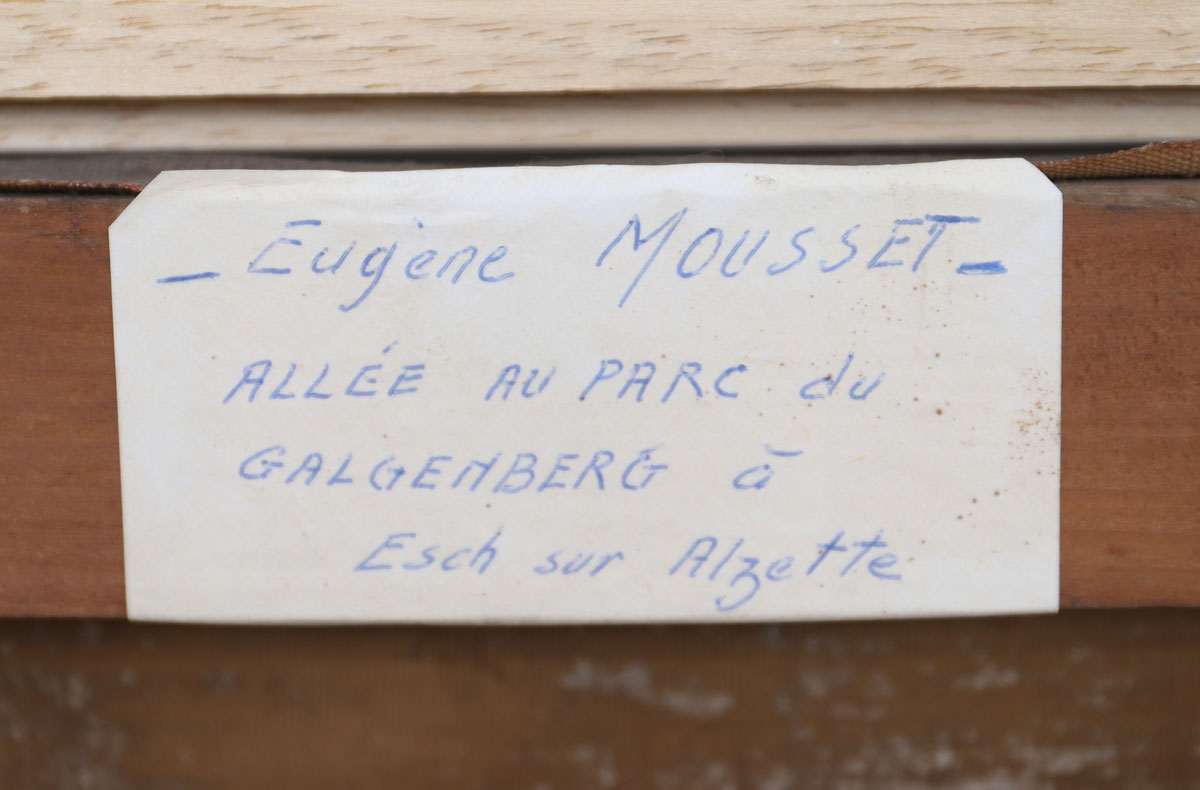 — Eugène MOUSSET —
ALLÉE AU PARC du
GALGENBERG à
Esch sur Alzette